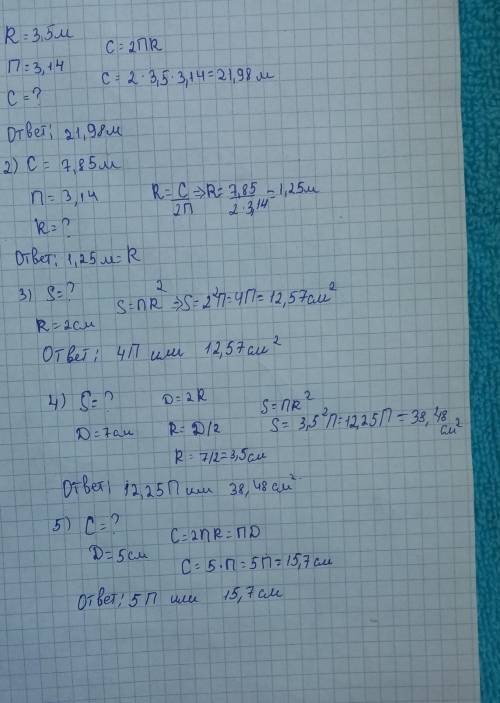 R = 3,5м
П = 3,14
C = 2ПR
C = ?
C = 2 · 3,5 · 3,14 = 21,98м
Ответ; 21,98м
2) C = 7,85м
П = 3,14
R = C/2П ⇒ R = 7,85/2·3,14 = 1,25м
R = ?
Ответ; 1,25м = R
3) S = ?
S = ПR² ⇒ S = 2²П = 4П = 12,57см²
R = 2см
Ответ; 4П или 12,57см²
4) S = ?
D = 2R
S = ПR²
D = 7см
R = D/2
S = 3,5²П = 12,25П = 38,48 см²
R = 7/2 = 3,5см
Ответ; 12,25П или 38,48см²
5) C = ?
C = 2ПR = ПD
D = 5см
C = 5·П = 5П = 15,7см
Ответ; 5П или 15,7см